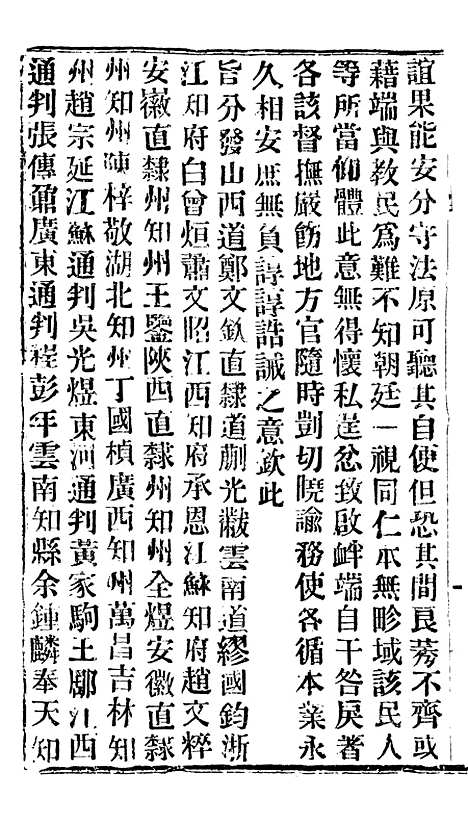 誼果能安分守法原可聽其自使但恐其間良莠不齊或
藉端與敎民爲難不知朝廷一視同仁本無畛域該民人
等所當仰體此意無得懷私逞忿致啟衅端自干咎戾著
各該督撫嚴飭地方官隨時剴切曉諭務使各循本業永
久相安庶無負諄諄誥誡之意欽此
旨分發山西道鄭文欽直隸道蒯光黻雲南道繆國鈞浙
江知府白曾烜蕭文昭江西知府承恩江蘇知府趙文粹
安徽直隸州知州王鑒陝西直隸州知州全煜安徽直隸
州知州陳梓敬湖北知州丁國楨廣西知州萬昌吉林知
州趙宗延江蘇通判吳光煜東河通判黃家駒王鄢江西
通判張傳鼐廣東通判程彭年雲南知縣余鍾麟奉天知